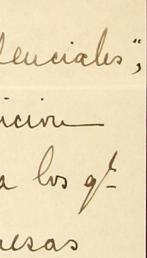 denciales",
icion
a los q.e
uesas